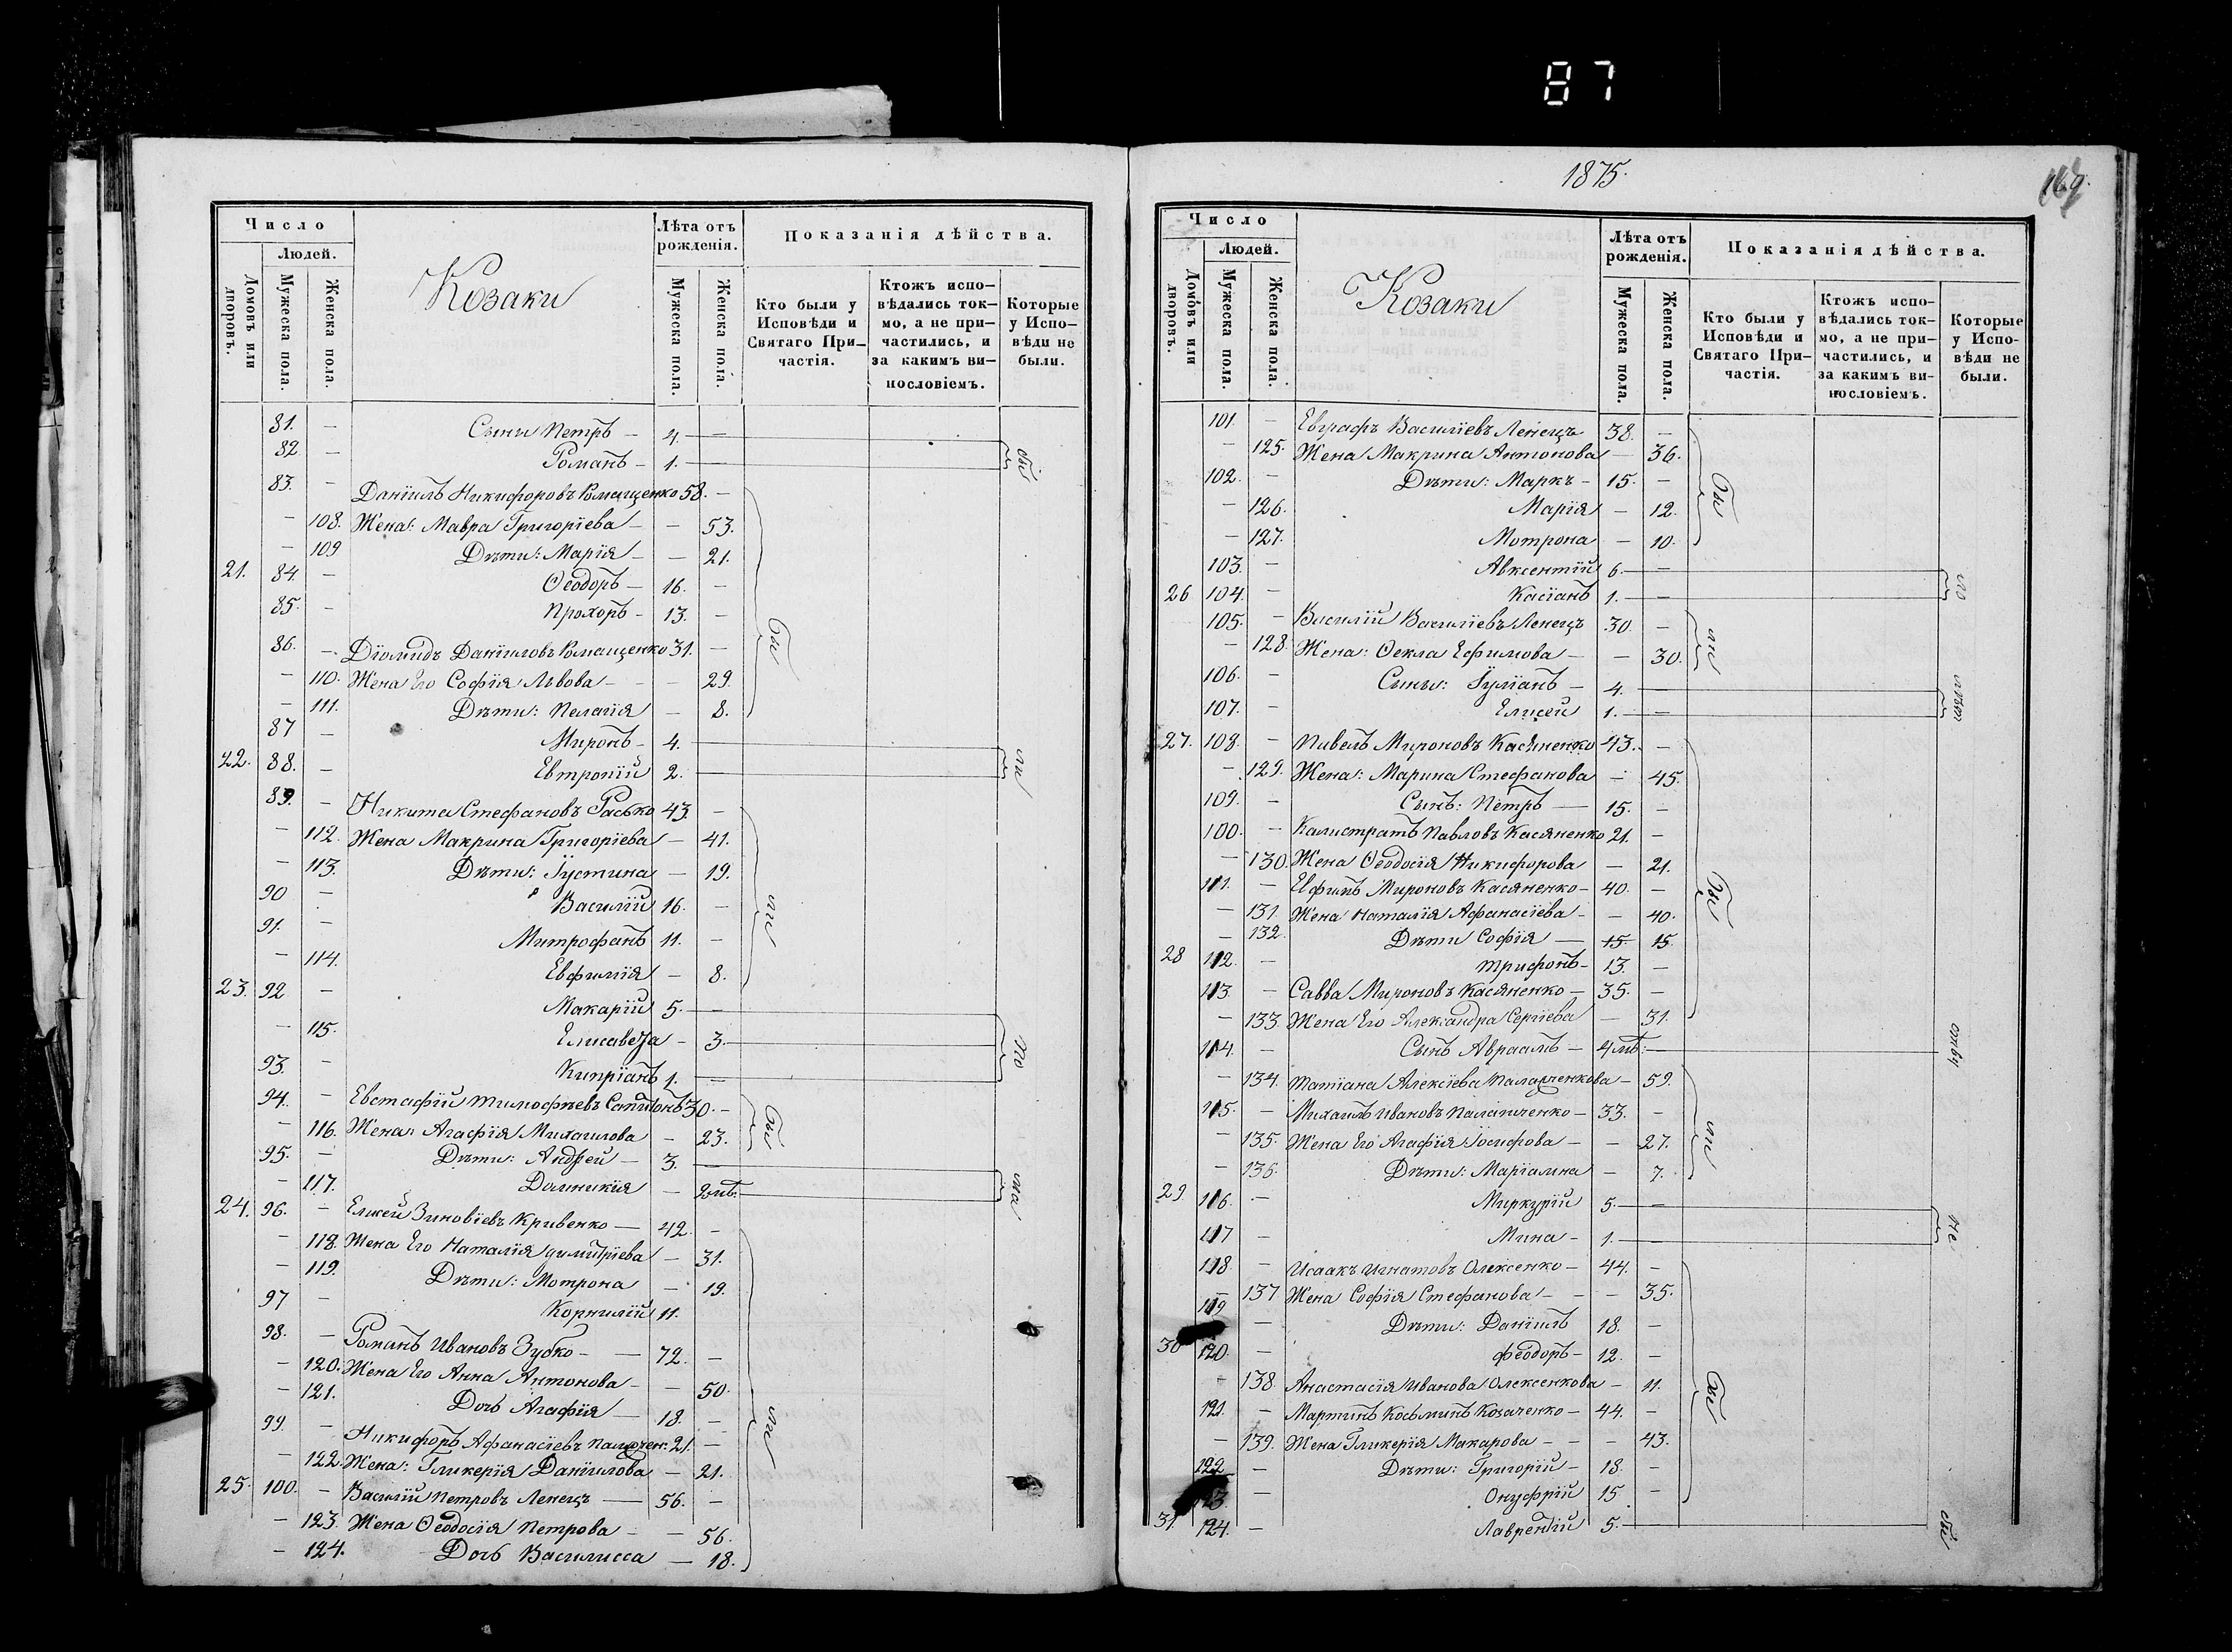 87
Число
Людей.
Домовъ или дворовъ.
Мужеска пола.
Женска пола.
Козаки
Лѣта отъ рожденія.
Мужеска пола.
Женска пола.
Показанія дѣйства.
Кто были у Исповѣди и Святаго Причастія.
Ктожъ исповѣдались токмо, а не причастились, и за какимъ винословіемъ.
Которые у Исповѣди не были.
81. — Сыны Петръ — 4. —
82. — Романъ — 1. —
83. — Даніилъ Никифоровъ Ромащенко 58. —
— 108. Жена: Мавра Григоріева — — 53.
— 109 Дѣти: Марія — — 21.
21. 84. — Ѳеодоръ — 16. —
85. — Прохоръ — 13. —
86. — Діомидъ Даніиловъ Ромащенко 31. —
— 110. Жена Его Софія Львова — — 29.
— 111. Дѣти: Пелагія — 8.
87 — Миронъ — 4. —
22. 88. — Евтропій 2. —
89. — Никита Стефановъ Расько 43. —
— 112. Жена Макрина Григоріева — 41.
— 113. Дѣти: Іустина — 19.
90 — Василій 16. —
91. — Митрофанъ 11. —
— 114. Евфимія — 8.
23. 92 — Макарій 5. —
— 115. Елисавета — 3.
93. — Кипріанъ 1. —
94. — Евстафій Тимофѣевъ 30. —
— 116. Жена: Агафія Михаилова — 23.
95. — Дѣти: Андрей — 3. —
— 117. Домникія —
24. 96. — Елисей Зиновіевъ Кривенко — 42. —
— 118. Жена Его Наталія Димитріева — 31.
— 119. Дѣти: Мотрона — 19.
97 — Корнилій 11.
98. — Романъ Ивановъ Зубко — — 72. —
— 120. Жена Его Анна Антонова — — 50.
— 121. Дочь Агафія — 18. —
99. — Никифоръ Афанасіевъ 21. —
— 122. Жена: Гликерія Даніилова — 21.
25. 100. — Василій Петровъ Ленецъ — 56. —
— 123. Жена Ѳеодосія Петрова — — 56.
— 124. Дочь Василисса — 18.
1875.
Число
Людей.
Домовъ или дворовъ.
Мужеска пола.
Женска пола.
Козаки
Лѣта отъ рожденія.
Мужеска пола.
Женска пола.
Показанія дѣйства.
Кто были у Исповѣди и Святаго Причастія.
Ктожъ исповѣдались токмо, а не причастились, и за какимъ винословіемъ.
Которые у Исповѣди не были.
101. — Евграфъ Василіевъ Ленецъ 38. —
— 125. Жена Макрина Антонова — 36.
102. — Дѣти: Маркъ — 15. —
— 126. Марія — 12.
— 127. Мотрона — 10.
103. — Авксентій 6. —
26 104. — Касіанъ 1. —
105. — Василій Василіевъ Ленецъ 30. —
— 128. Жена: Ѳекла Ефимова — — 30.
106. — Сыны: Іуліанъ — 4. —
107. — Елисей 1. —
27. 108. — Павелъ Мироновъ Касяненко 43. —
— 129. Жена: Марина Стефанова — 45.
109. — Сынъ: Петръ — 15. —
100. — Калистратъ Павловъ Касяненко 21. —
— 130. Жена Ѳеодосія Никифорова — 21.
111. — Евфимъ Мироновъ Касяненко — 40. —
— 131. Жена Наталія Афанасіева — — 40.
— 132. Дѣти София — 15 15.
28 112. — Трифонъ — 13. —
113. — Савва Мироновъ Касяненко — 35. —
— 133. Жена Его Александра Сергіева — 31.
114. — Сынъ Авраамъ —
— 134. Татіана Алексіева — 59.
115. — Михаилъ Ивановъ — 33. —
— 135. Жена Его Агафія Іосифова — — 27.
— 136. Дѣти: Маріамна — 7.
29 116. — Миркурій 5. —
117 — Мина — 1. —
118. — Исаакъ Игнатовъ Олексенко — 44. —
— 137 Жена Софія Стефанова — — 35.
119 — Дѣти: Даніилъ 18. —
30 120. — Феодоръ — 12. —
— 138. Анастасія Иванова Олексенкова — 11.
121. — Мартинъ Косьминъ Козаченко — 44. —
— 139. Жена Гликерія Макарова — — — 43.
122 — Дѣти: Григорій — 18. —
123. — Онуфрій 15 —
31. 124. — Лаврентій 5. —